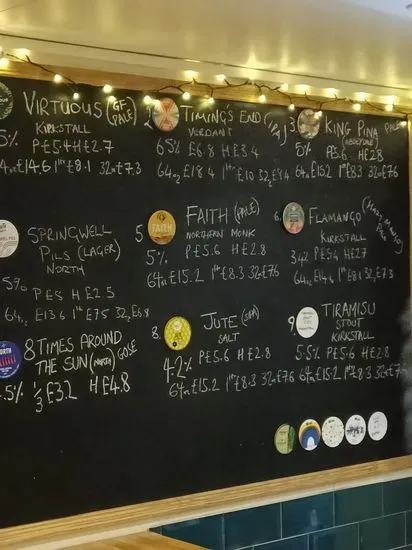 VIRTUOUS (GF PALE)
KIRKSTALL
5% P£5.4 H£2.7
64oz £14.6 1ltr £8.1 32oz £7.3
2 TIMING'S END (IPA)
VERDANT
6.5% £6.8 H£3.4
64oz £18.4 1ltr £10 32oz £9.4
3. KING PINA PALE
5% P£5.6 H£2.8
64oz £15.2 1ltr £8.3 32oz £7.6
SPRINGWELL
PILS (LAGER)
NORTH
5% P£5 H£2.5
64oz £13.6 1ltr £7.5 32oz £6.8
5 FAITH (PALE)
FAITH
NORTHERN MONK
5% P£5.6 H£2.8
64oz £15.2 1ltr £8.3 32oz £7.6
6. FLAMANGO (HAZY MANGO PALE
KIRKSTALL
P£5.4 H£2.7
64oz £14.6 1ltr £8.1 32oz £7.3
8 TIMES AROUND
THE SUN (NORTH) GOSE
NORTH
.5% 1/3 £3.2 H£4.8
8. JUTE (IPA)
SALT
4.2% P£5.6 H£2.8
64oz £15.2 1ltr £8.3 32oz £7.6
9 TIRAMISU
STOUT
KIRKSTALL
5.5% P£5.6 H£2.8
64oz £15.2 1ltr £8.3 32oz £7.6